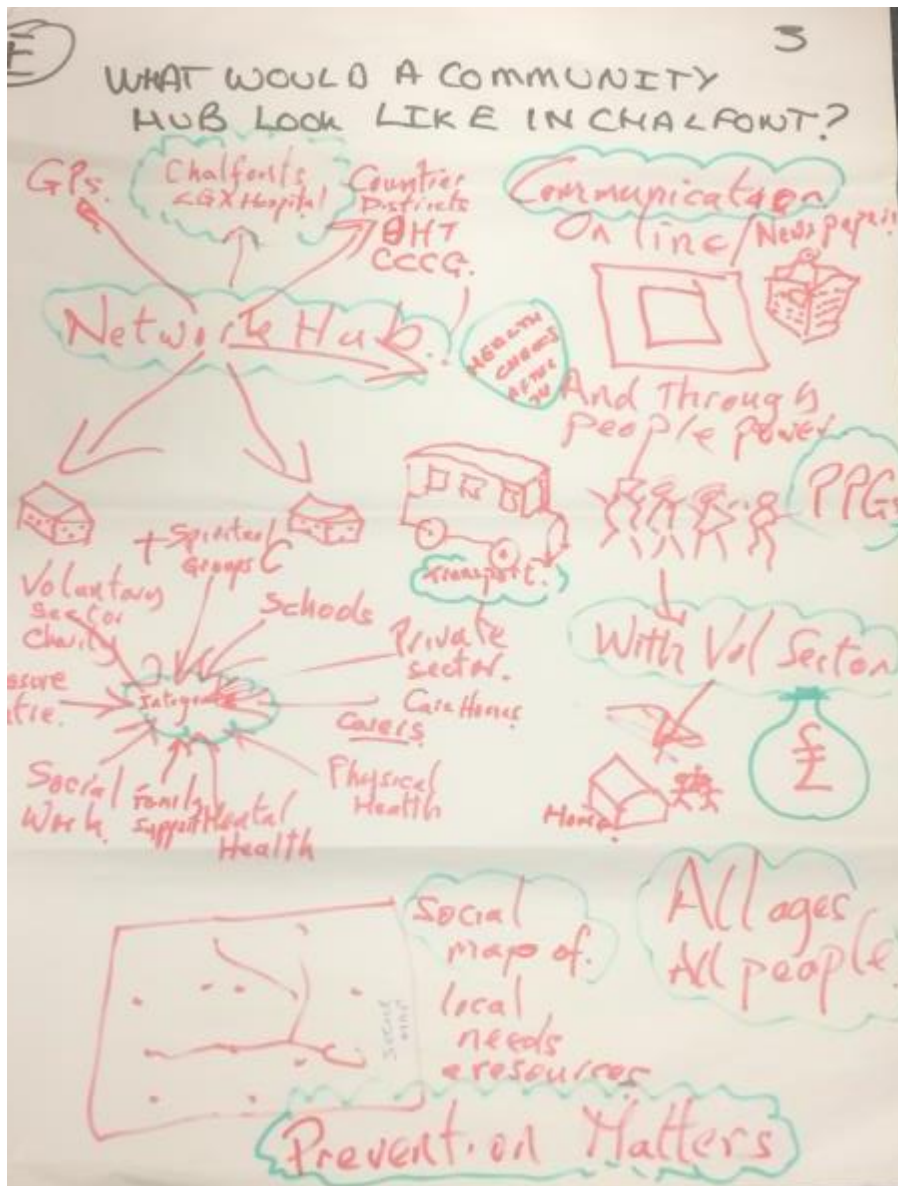 3
WHAT WOULD A COMMUNITY
HUB LOOK LIKE IN CHALFONT?
GPs
Chalfonts
Hospital
Counties
Districts
BHT
CCCG.
Communication
On line/Newspaper
Network Hub.
HEALTH
CHECKS
AFTER
And Through
people power
PPGs
+ Spiritual
Groups
Voluntary
Sector
Charity
Schools
Transport.
Private
sector.
With Vol Sector
Integrate
Care Homes
Carers
Social
Work.
Family
Support
Mental
Health
Physical
Health
Home
£
Social
map of.
local
needs
& resources
All ages
All people
Prevention Matters